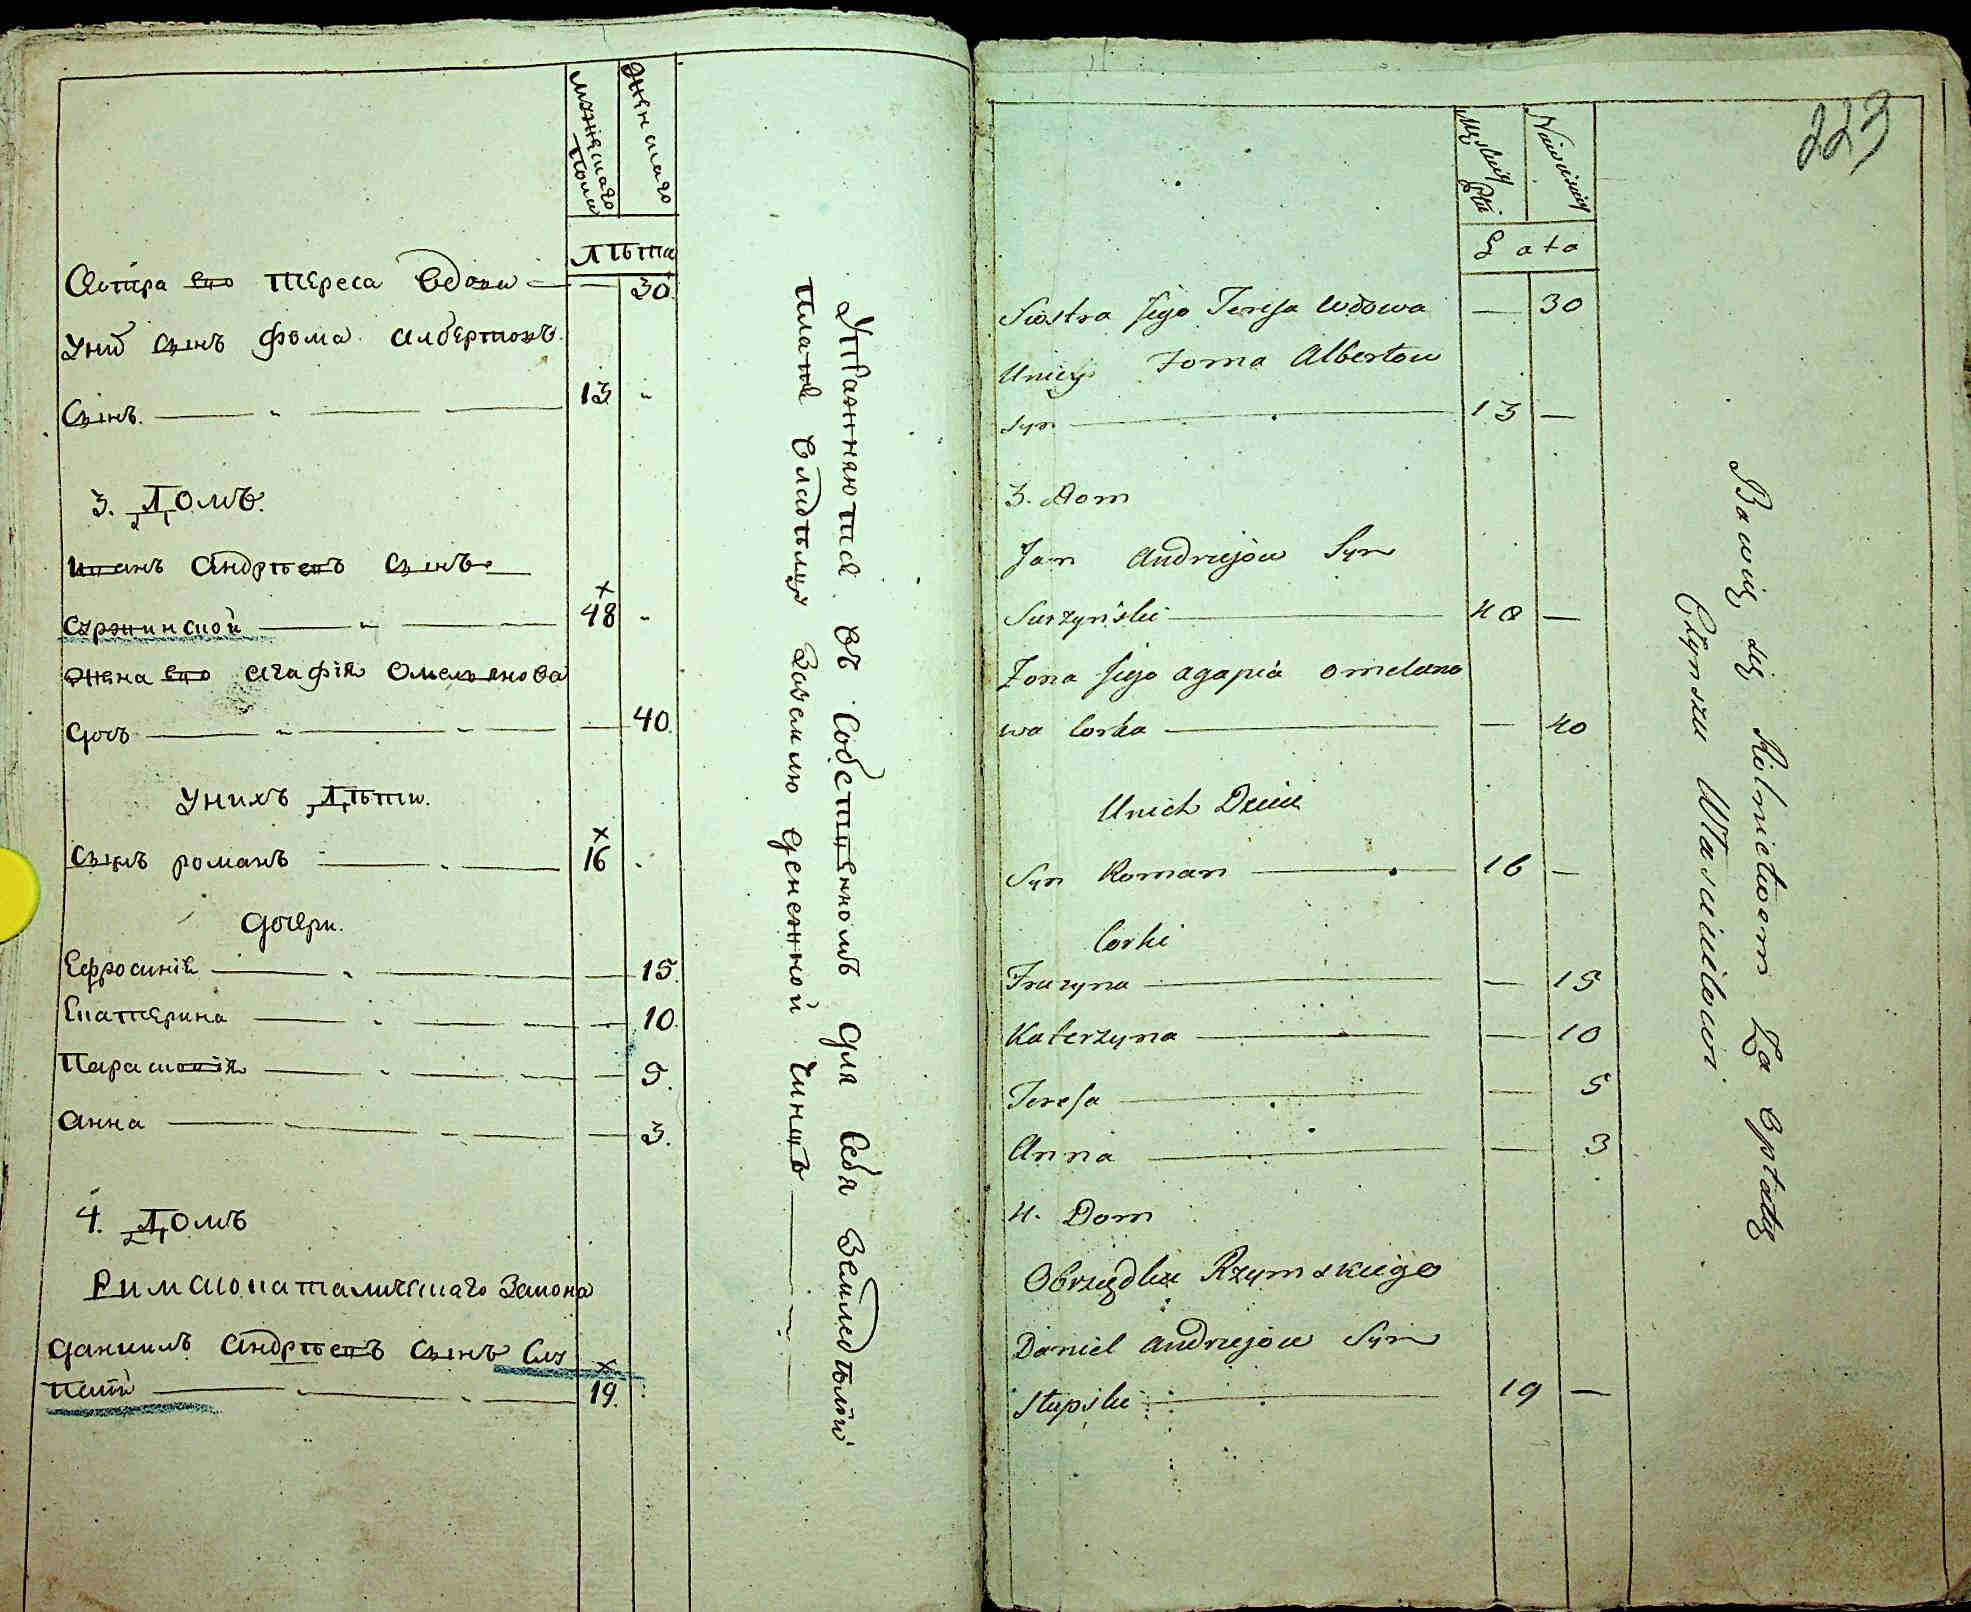 мужескаго пола
женскаго
лѣта
Сестра его Тереса вдова — 30.
У ней сынъ Фома Албертовъ
Сынъ. — 13 "
3. Домъ.
Иванъ Андрѣевъ сынъ
Суржинской — 48 "
Жена его Агафія Омельянова
дочь — 40.
У нихъ Дѣти.
Сынъ романъ — 16
дочери.
Ефросинія — 15.
Екатерина — 10.
Парасковія — 5.
Анна — 3.
4. Домъ
Римскокатолическаго Закона
Даниилъ Андрѣевъ сынъ Слу
пскій — 19.
Упражняются въ собственномъ для себя земледѣлій
платѣ владѣльцу за землю денежной чиншъ —
223
Męskiey Płci
Niewieściey
Lata
Siostra Jego Teresa wdowa — 30
Uniey Toma Albertow
syn — 13 —
3. Dom
Jan Andrzejow Syn
Surzyński — 48 —
Zona Jego Agapia Omelano
wa Corka — 40
Unich Dzieci
Syn Roman — 16 —
Corki
Fruzyna — 15
Katerzyna — 10
Teresa — 5
Anna — 3
4. Dom
Obrządku Rzymskiego
Daniel Andrzejow Syn
Słupski — 19 —
Bawią się Rolnictwem Za Opłatą
Czynszu Właścicielowi